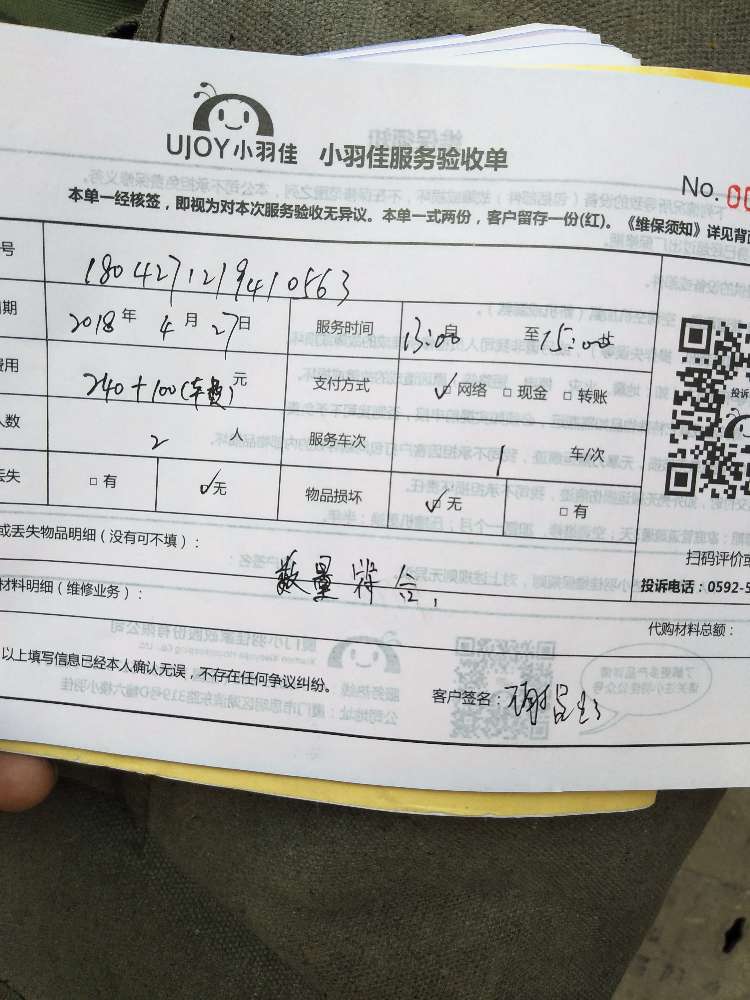 UJOY小羽佳 小羽佳服务验收单
No. 00
本单一经核签，即视为对本次服务验收无异议。本单一式两份，客户留存一份(红)。《维保须知》详见背
号 1804271219410563
期 2018年4月27日 服务时间 13:00 至15:00
费用 240+100(车费)元 支付方式 网络 现金 转账
人数 2人 服务车次 1 车/次
丢失 有 无 物品损坏 无 有
投诉
扫码评价或
或丢失物品明细（没有可不填）：
数量符合，
投诉电话：0592-5
材料明细（维修业务）：
代购材料总额：
以上填写信息已经本人确认无误，不存在任何争议纠纷。
客户签名：